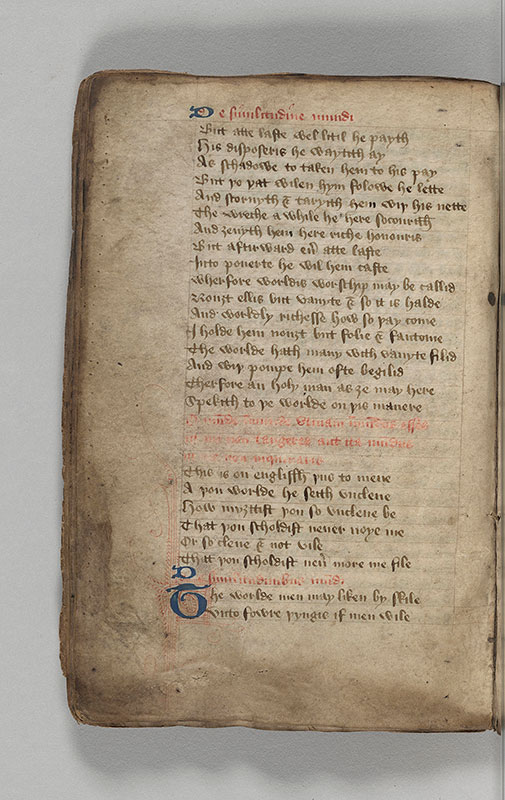 De similitudine mundi
But atte laste wel litil he payth
His disposeris he waytith ay
As schadowe to taken hem to his pay
But þo þat wilen hym folowe he lette
And scornyth & taryith hem wiþ his nette
The wreche a while he here socourith
And ȝeuyth hem here riche honouris
But aftirward euer atte laste
Into pouerte he wil hem caste
Wherfore worldis worschip may be callid
Nouȝt ellis but vanyte & so it is halde
And worldly richesse how so þay come
I holde hem nouȝt but folie & fantome
The worlde hath many with vanyte filid
And wiþ pompe hem ofte begilid
Therfore an holy man as ȝe may here
Spekith to þe worlde on þis manere
mundus
This is on englissh þus to mene
A þou worlde he seith vnclene
How myȝttist þou so vnclene be
That þou scholdist neuer noye me
Or so clene & not vile
That þou scholdist neuer more me file
De similitudinibus mundi
The worlde men may liken by skile
Vnto fowre þyngis if men wile